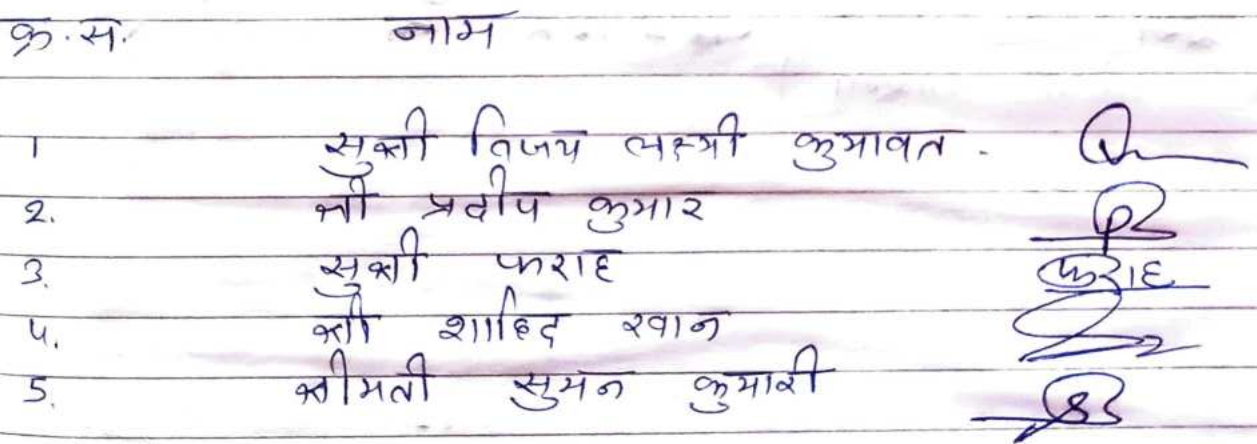 क्र.स. नाम
1 सुश्री विजय लक्ष्मी कुमावत.
2. श्री प्रदीप कुमार
3. सुश्री फराह फराह
4. श्री शाहिद खान
5. श्रीमती सुमन कुमारी